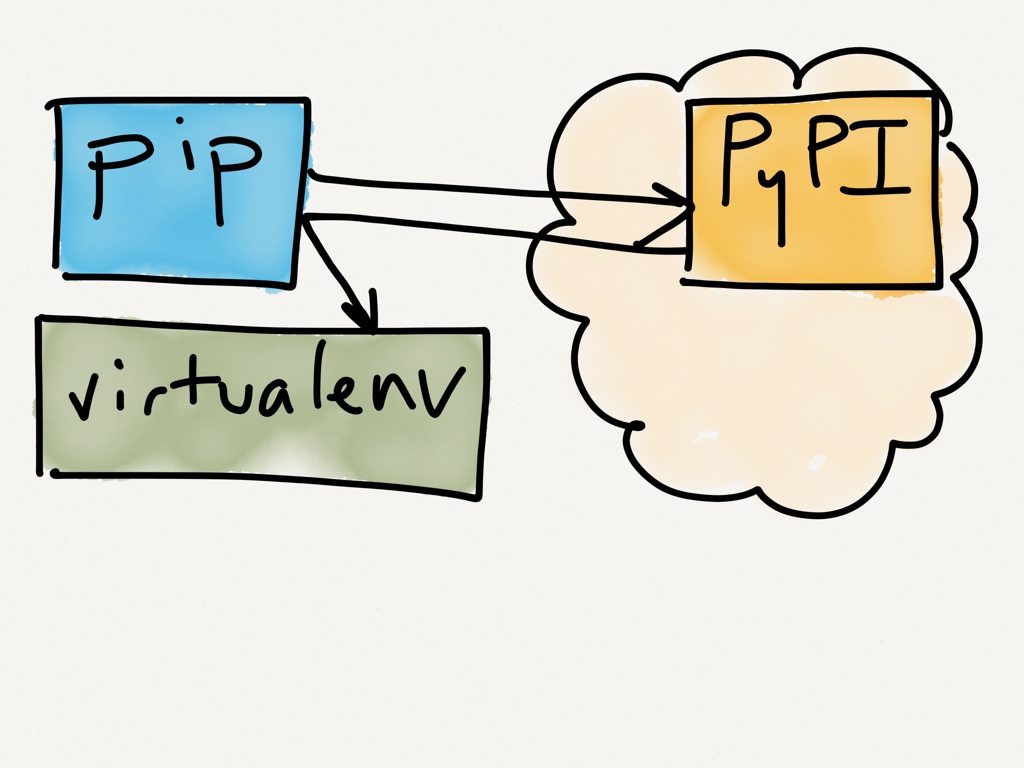 pip
PyPI
virtualenv